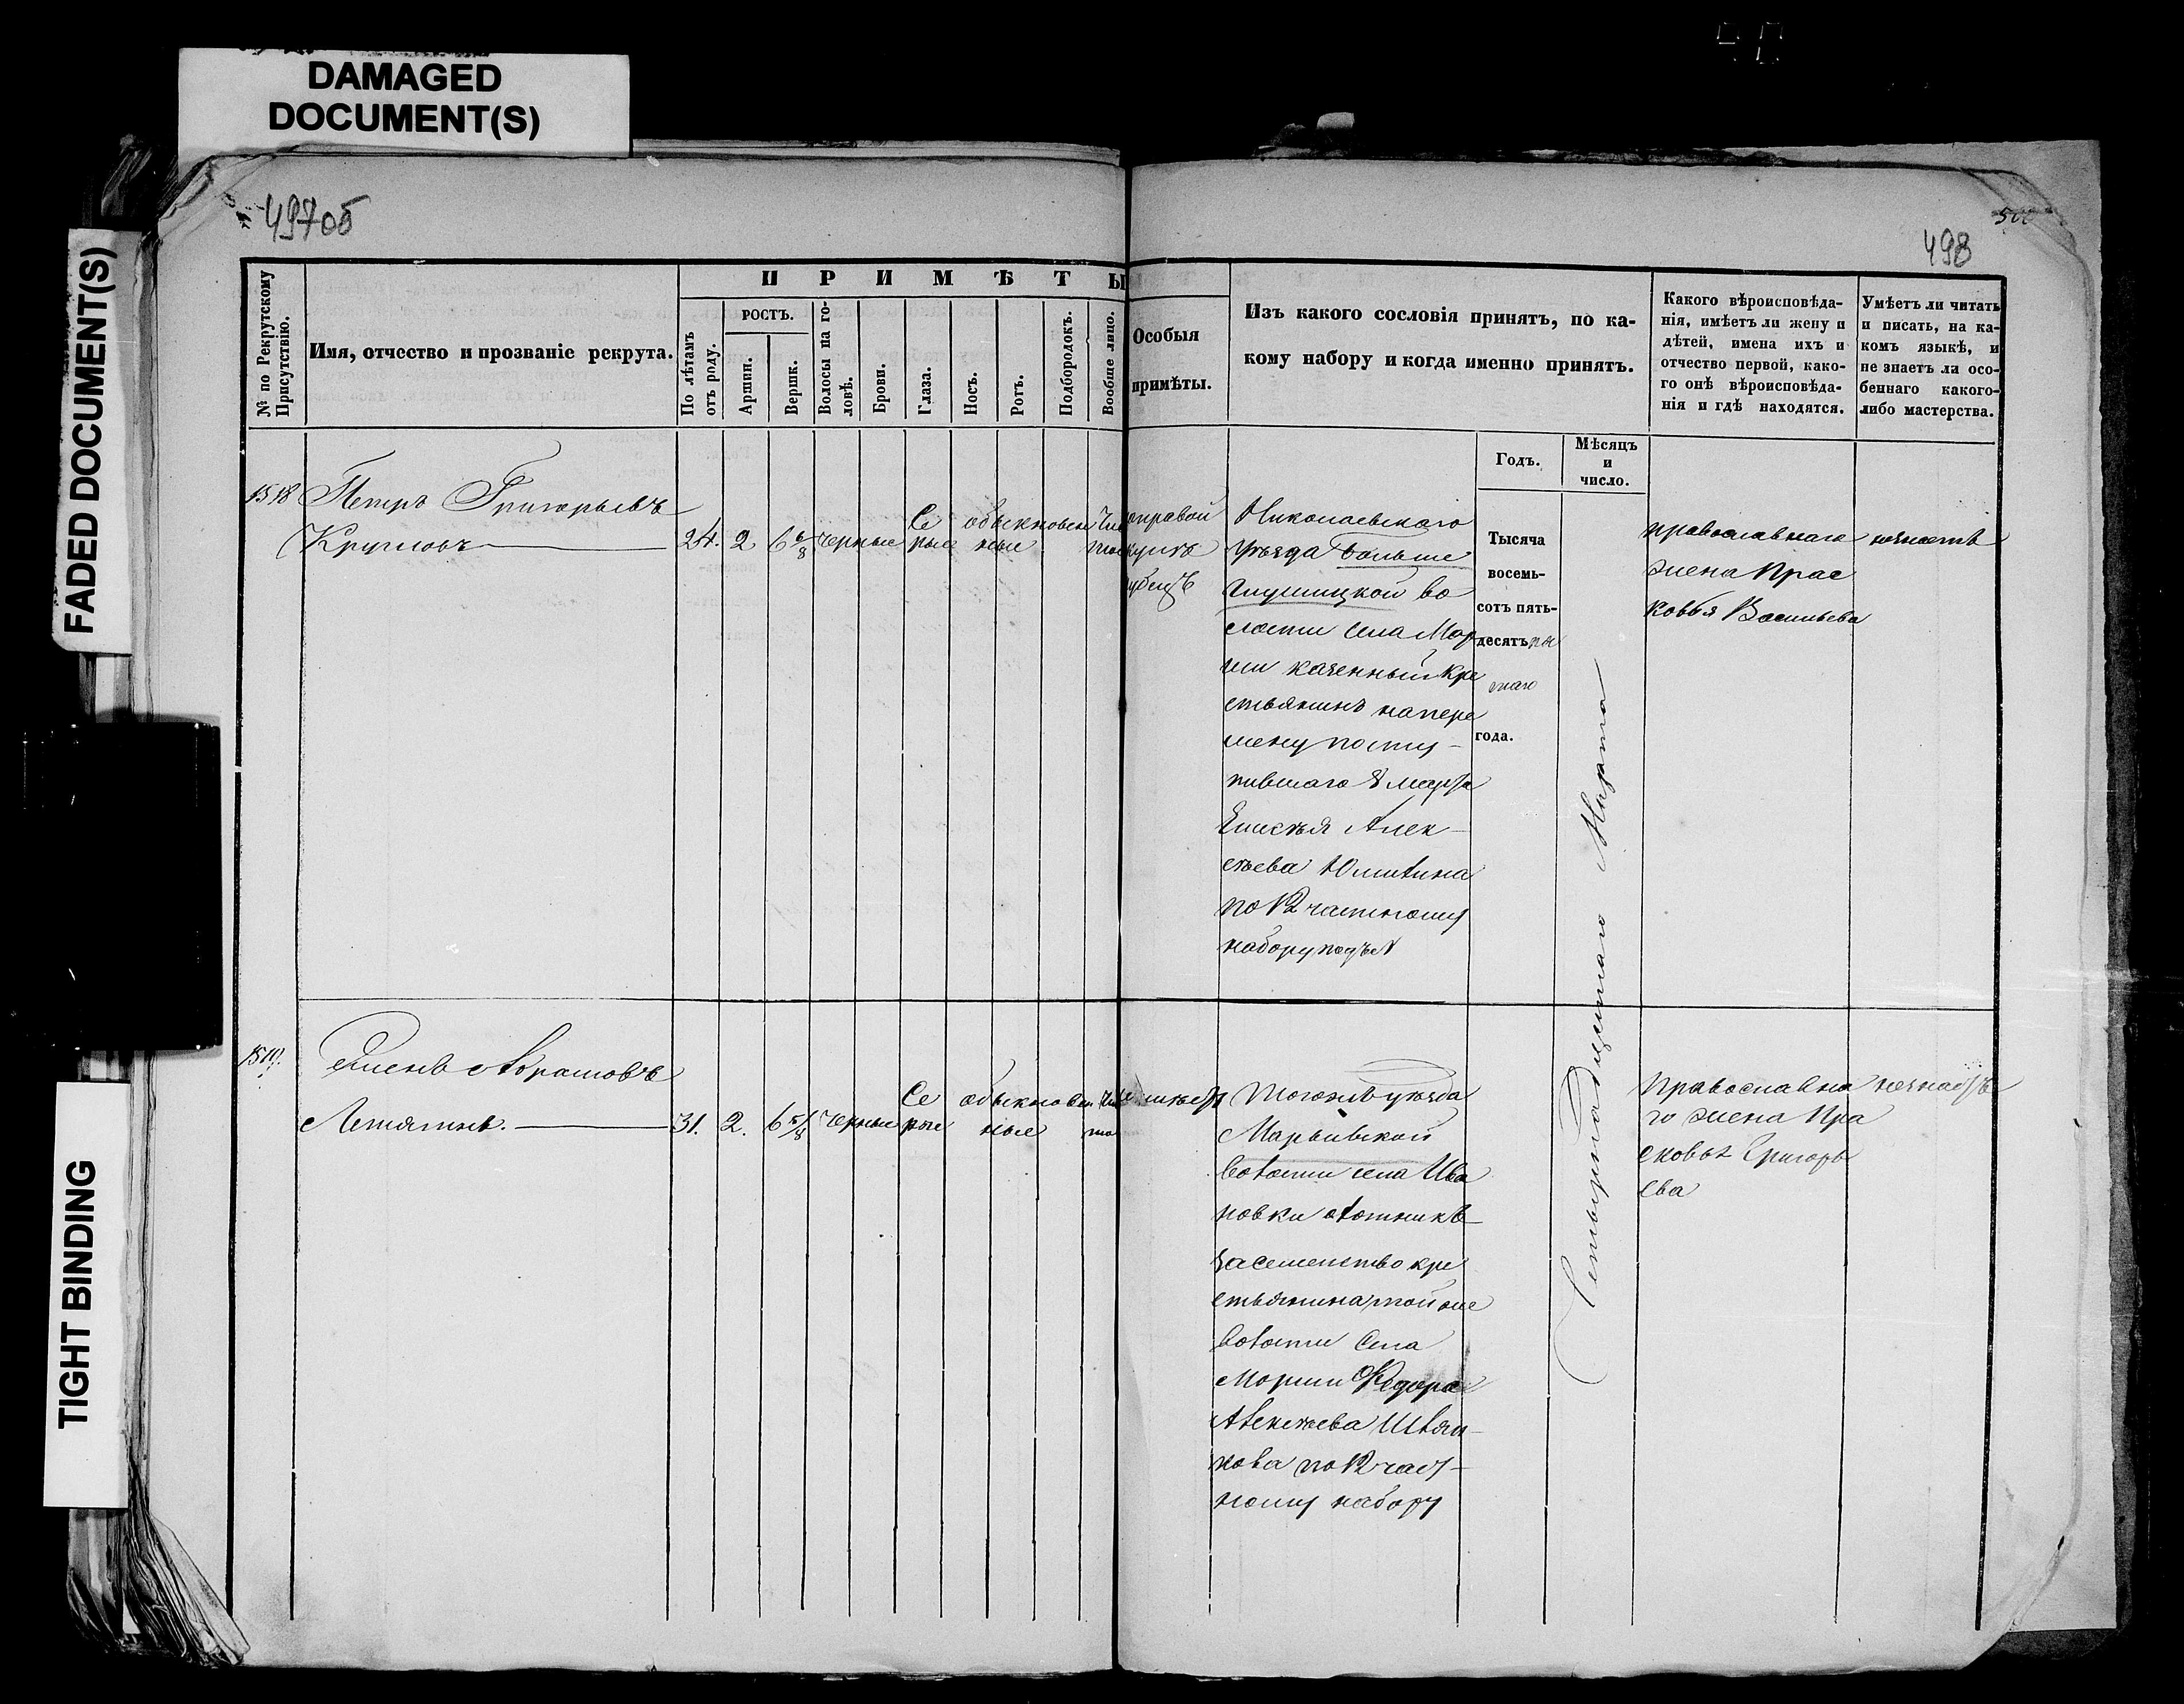 DAMAGED
DOCUMENT(S)
FADED DOCUMENT(S)
TIGHT BINDING
497об
498
№ по Рекрутскому
Присутствію.
Имя, отчество и прозваніе рекрута.
ПРИМѢТЫ
По лѣтамъ
отъ роду.
РОСТЪ.
Аршин.
Вершк.
Волосы на го-
ловѣ.
Брови.
Глаза.
Носъ.
Ротъ.
Подбородокъ.
Вообще лицо.
Особыя
примѣты.
Изъ какого сословія принятъ, по ка-
кому набору и когда именно принятъ.
Годъ.
Мѣсяцъ
и
число.
Какого вѣроисповѣда-
нія, имѣетъ ли жену и
дѣтей, имена ихъ и
отчество первой, како-
го онѣ вѣроисповѣда-
нія и гдѣ находятся.
Умѣетъ ли читать
и писать, на ка-
комъ языкѣ, и
не знаетъ ли осо-
беннаго какого-
либо мастерства.
1518
Петръ Григорьевъ
Кругловъ
24. 2 6 6/8 черные
Се
рые
обыкновен
ные
Чис
тое
правой
рубецъ
Николаевскаго
уѣзда Больше
Глушицкой во
лости села Мор
ши казенный кре
стьянинъ на пере
мену посту-
пившаго 8 марта
Елисѣя Алек-
сѣева
по 12 частному
набору
Тысяча
восемь-
сотъ пять-
десятъ пя
таго
года.
Четырнадцатаго Марта
православнаго
жена Прас
ковья Васильева
незнаетъ
1519.
Семенъ Абрамовъ
Летягинъ.
31. 2. 6 5/8 черные
Се
рые
обыкновен
ные
Чис
тое
неимѣетъ
Тогожъ уѣзда
Марьивской
волости села Ива
новки охотникъ
за семейство кре
стьянина той же
волости села
Морши Федора
Алексѣева
по 12 част-
ному набору
Православна
го жена Пра
сковья Григорь
ева
незнаетъ